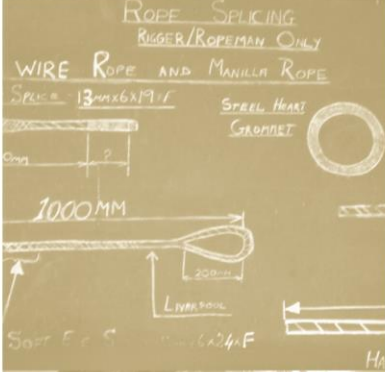 ROPE SPLICING
RIGGER/ROPEMAN ONLY
WIRE ROPE AND MANILLA ROPE
SPLICE 13MMX6X19XF
STEEL HEART
GROMMET
0MM
?
1000MM
200MM
LIVERPOOL
SOFT E S 6x24xF
HA